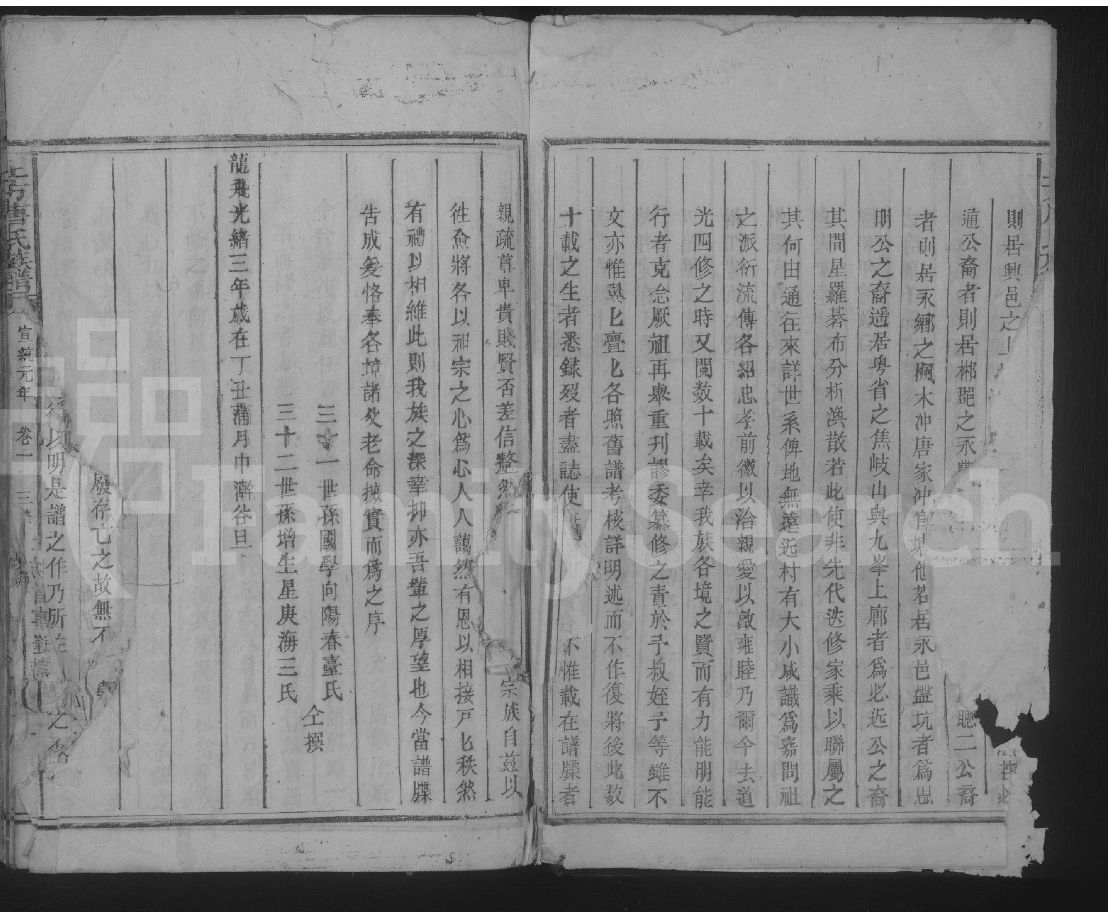 則居興邑之上
通公裔者則居郴麗之永
聰二公裔
者則居永鄉之楓木冲唐家冲官
他若居永邑盤坑者爲思
明公之裔遥居粵省之焦岐山與九峯上廓者爲必近公之裔
其間星羅碁布分析渙散若此使非先代迭修家乘以聯屬之
其何由通徃來詳世系俾地無遠近村有大小咸識爲嘉問祖
之派衍流傳各紹忠孝前徽以洽親愛以敵雍睦乃爾今去道
光四修之時又閱数十載矣幸我族各境之賢而有力能朋能
行者克念厥祖再舉重刊謬委纂修之責於予叔姪子等雖不
文亦惟異匕亹匕各照舊譜考核詳明述而不作復將後此数
十載之生者悉録歿者盡誌使
不惟載在譜牒者
親疏尊卑貴賤賢否差信整然
宗族自兹以
徃僉將各以祖宗之心爲心人人藹然有恩以相接戸匕秩然
有禮以相維此則我族之深幸抑亦吾輩之厚望也今當譜牒
告成爰恪奉各埠諸攵老命摭實而爲之序
三十一世孫國學向陽春臺氏
三十二世孫增生星庚海三氏
仝撰
龍飛光緒三年歳在丁丑蒲月中澣谷旦
廢存亡之故無不
明是譜之作乃所
唐氏族譜
宣統元年
卷一
FamilySearch